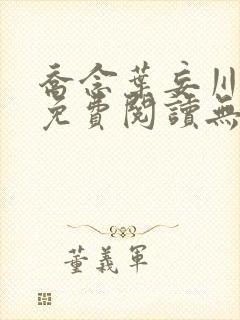 喬念葉妄川
免費閱讀無
董義軍